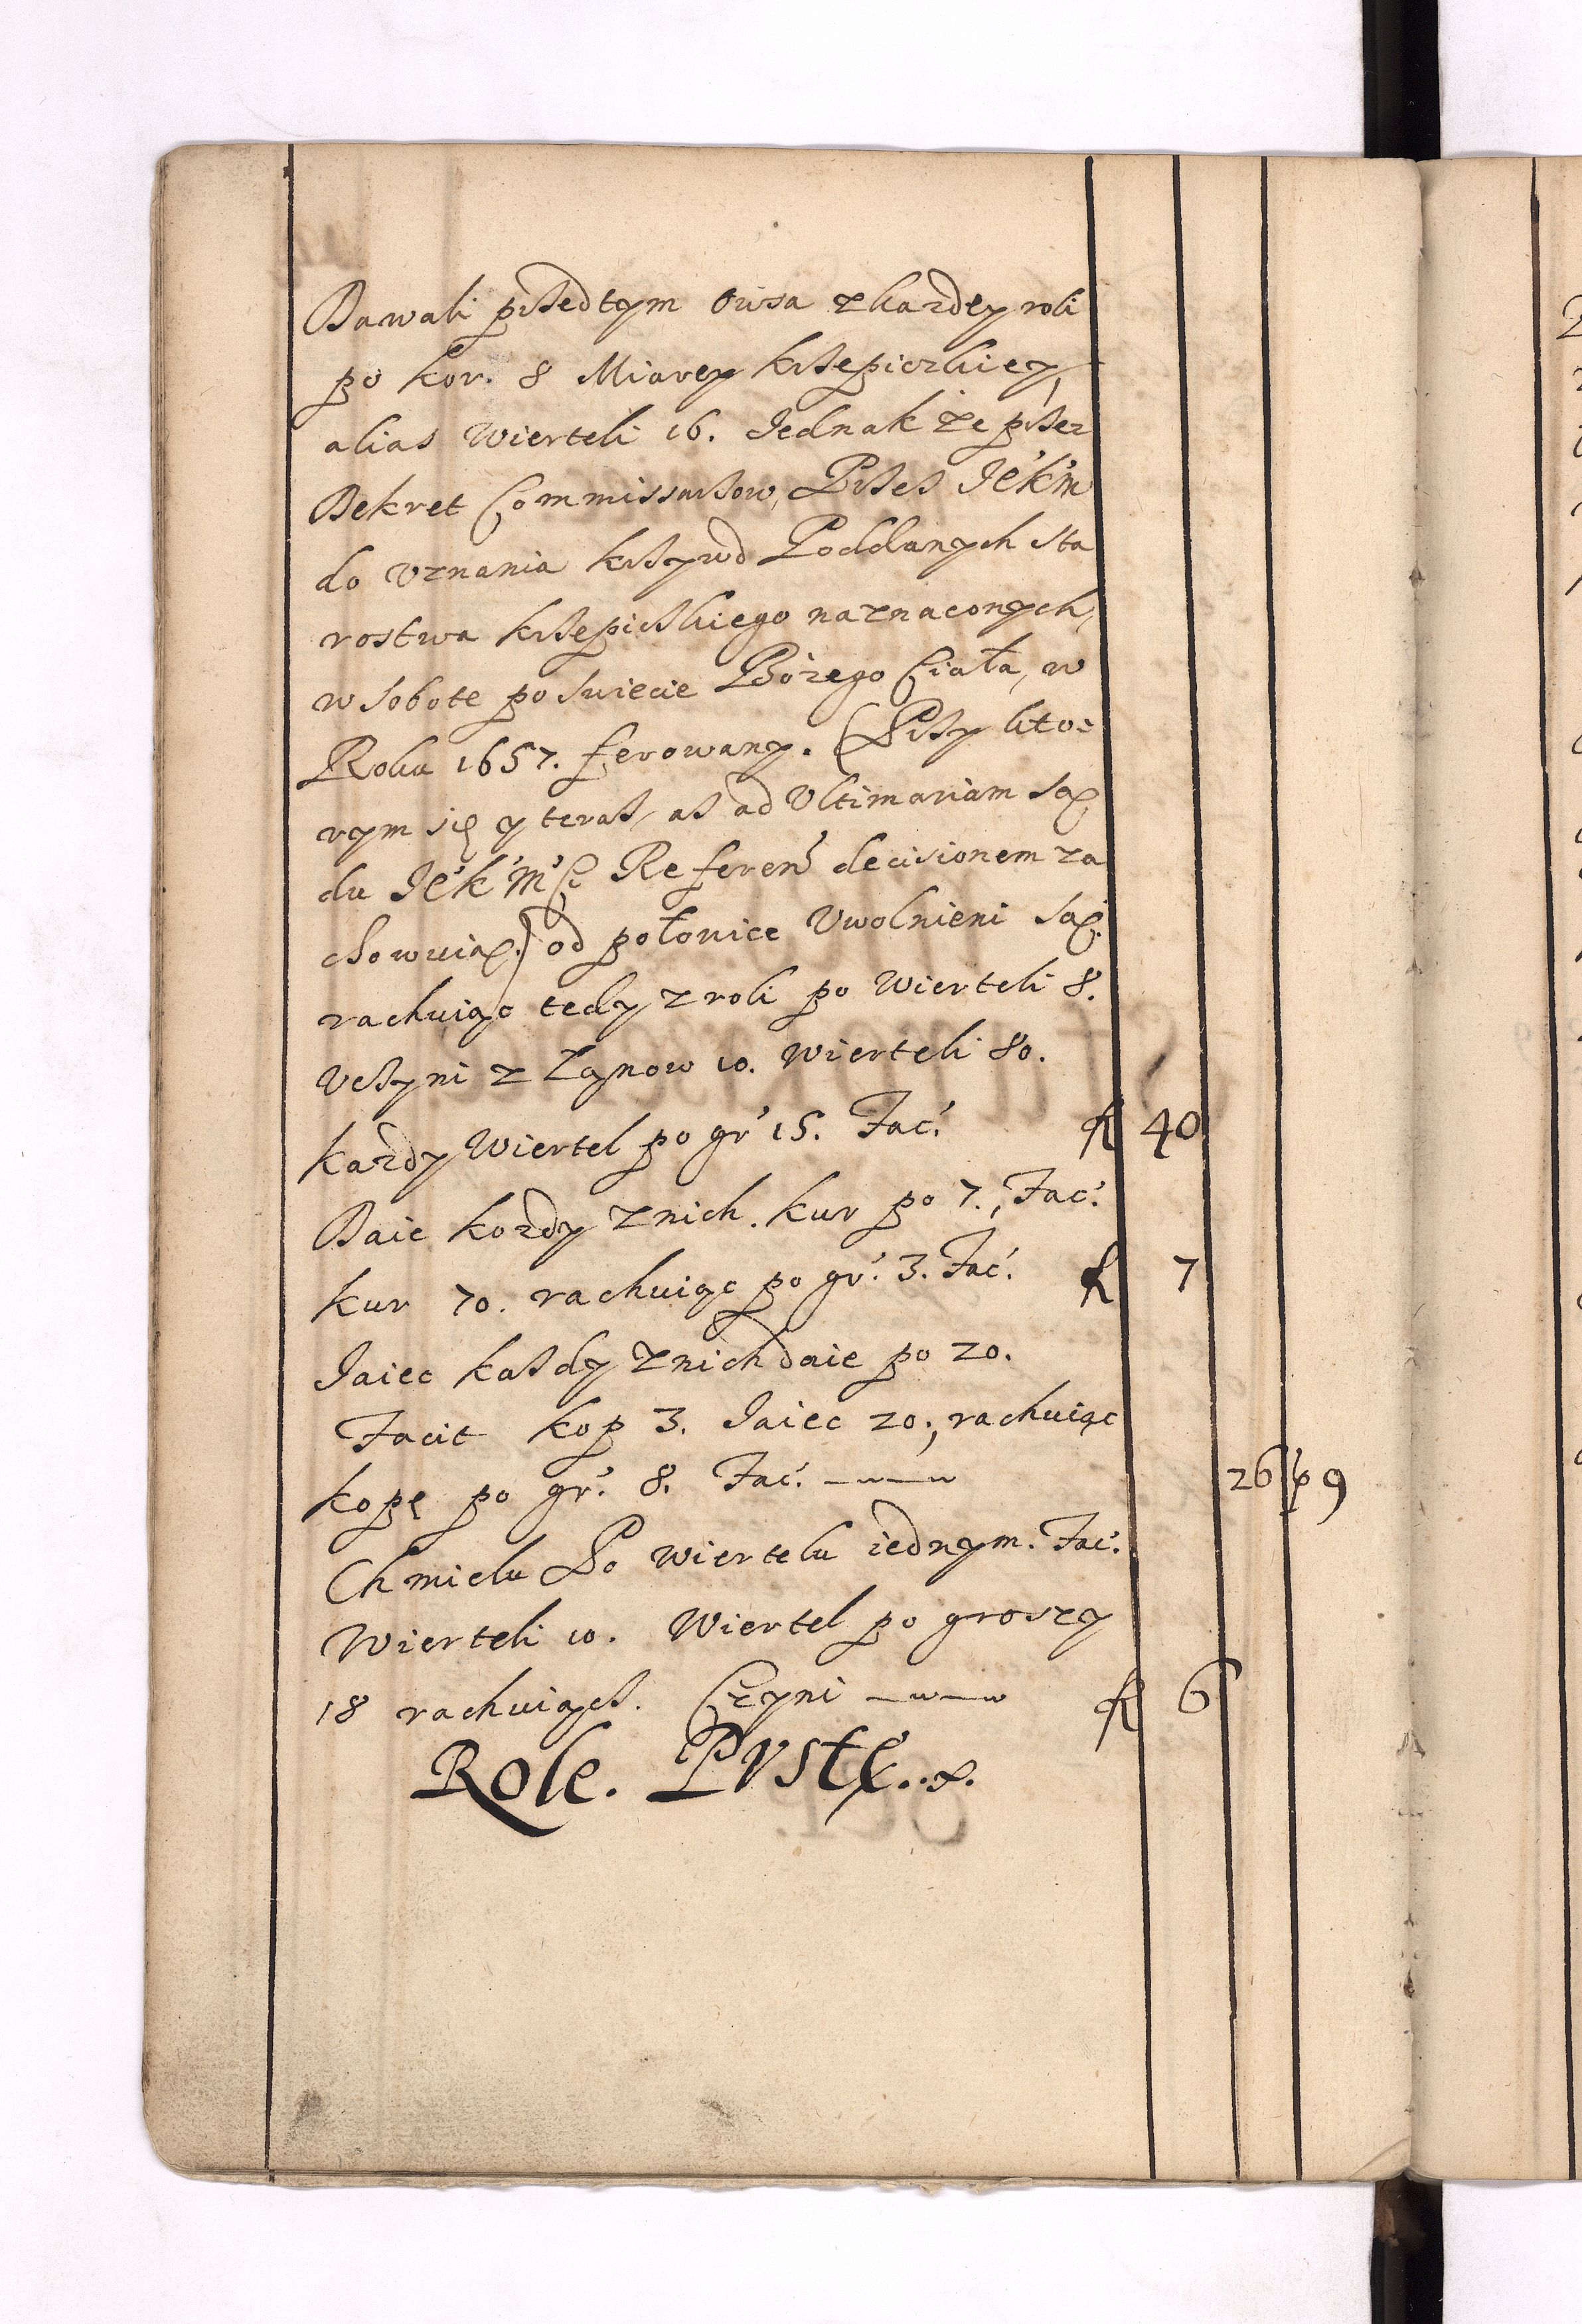 Dawali przedtym owsa z kazdey roli
po kor. 8 Miarey krzepiczkiey,
alias Wierteli 16. Jednak że przez
Dekret Commissarzow, Przez JeKM
do Uznania krzywd Poddanych sta
rostwa krzepickiego naznaconych,
w Sobote po swiecie Bożego Ciała, w
Roku 1657. ferowany. (Przy kto=
rym się y teraz, az ad Ultimariam Są
du JeK MCi Referen decisionem za
chowuią.) od połowice Uwolnieni są.
rachuiąc tedy z roli po Wierteli 8.
Uczyni z Łanow 10. Wierteli 80.
każdy Wiertel po gr 15. Fac. fl 40
Daie kożdy z nich. kur po 7., Fac.
kur 70. rachuiąc po gr. 3. Fac. fl 7
Jaiec każdy z nich daie po 20.
Facit kop 3. Jaiec 20; rachuiąc
kopę po gr. 8. Fac. 26 p 9
Chmielu Po wiertelu iednym. Fac.
Wierteli 10. Wiertel po groszy
18 rachuiącz. Czyni fl 6
Role. PVste.